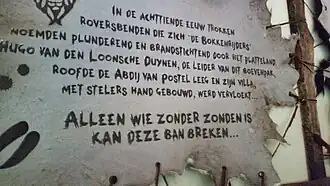 In de achttiende eeuw trokken
roversbenden die zich 'de Bokkenrijders'
noemden plunderend en brandstichtend door het platteland
Hugo van den Loonsche Duynen, de leider van dit boevendom
roofde de Abdij van Postel leeg en zijn villa,
met stelers hand gebouwd, werd vervloekt...
Alleen wie zonder zonden is
kan deze ban breken...